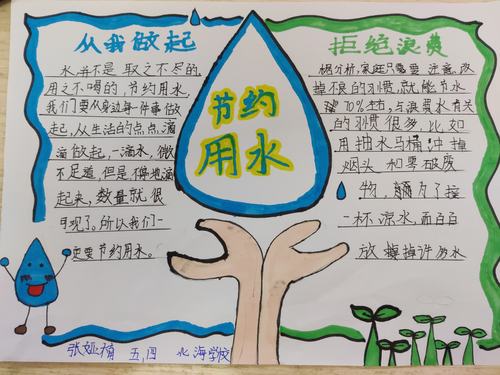 从我做起
水并不是取之不尽的,
用之不喝的,节约用水,
我们要从身边每一件事做
起,从生活的点点滴
滴做起,一滴水,微
不足道,但是
起来,数量就很
可观了。所以我们一
定要节约用水。
节约
用水
拒绝浪费
据分析,家庭只需要注意改
掉不良的习惯,就能节水
70%左右,与浪费水有关
的习惯很多,比如
用抽水马桶冲掉
烟头和零碎废
物,为了接
一杯凉水,而白白
放掉许多水
五,四
学校